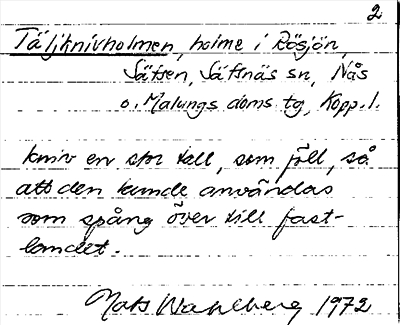 2
Täljknivholmen, holme i Rösjön,
Säfsen, Säfsnäs sn, Nås
o. Malungs doms tg, Kopp. l.
kniv en stor tall, som föll, så
att den kunde användas
som spång över till fast-
landet.
Mats Wahlberg 1972